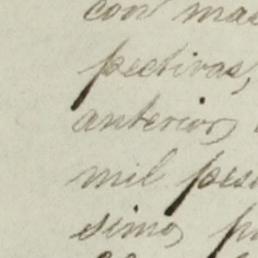 con mas
pectivas,
anterior
mil pes
simo, p